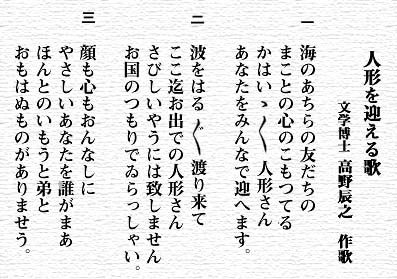 人形を迎える歌
文学博士 高野辰之 作歌
一
海のあちらの友だちの
まことの心のこもつてる
かはいゝ〱人形さん
あなたをみんなで迎へます。
二
波をはる〲渡り来て
ここ迄お出での人形さん
さびしいやうには致しません
お国のつもりでゐらつしゃい。
三
顔も心もおんなしに
やさしいあなたを誰がまあ
ほんとのいもうと弟と
おもはぬものがありませう。